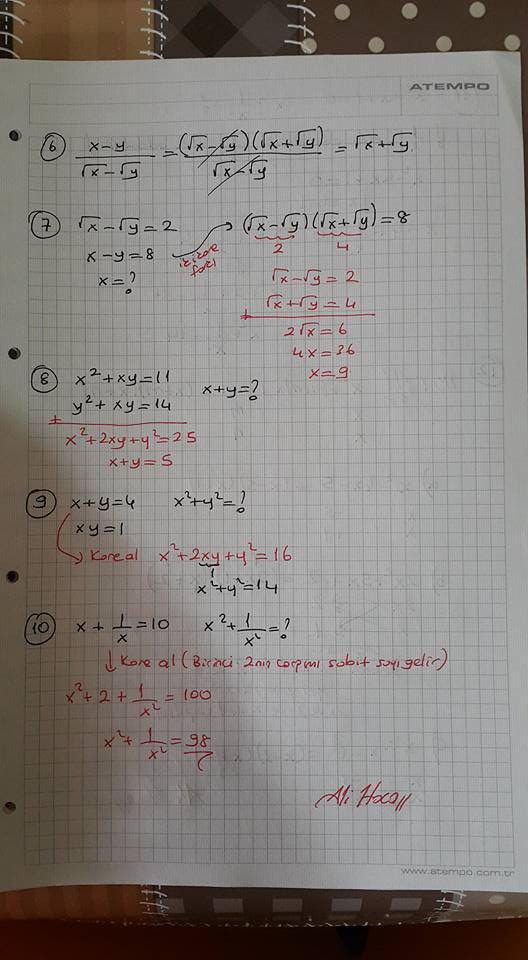 ATEMPO
6 x-y/√x-√y = (√x-√y)(√x+√y)/√x-√y = √x+√y
7 √x-√y=2 (√x-√y)(√x+√y)=8
2 4
x-y=8 iki kare farkı
x=?
√x-√y=2
√x+√y=4
+
2√x=6
4x=36
x=9
8 x²+xy=11 x+y=?
y²+xy=14
+
x²+2xy+y²=25
x+y=5
9 x+y=4 x²+y²=?
xy=1
Kare al x²+2xy+y²=16
1
x²+y²=14
10 x+1/x=10 x²+1/x²=?
↓ Kare al (Birinci 2nin çarpımı sabit sayı gelir)
x²+2+1/x²=100
x²+1/x²=98
Ali Hoca
www.atempo.com.tr